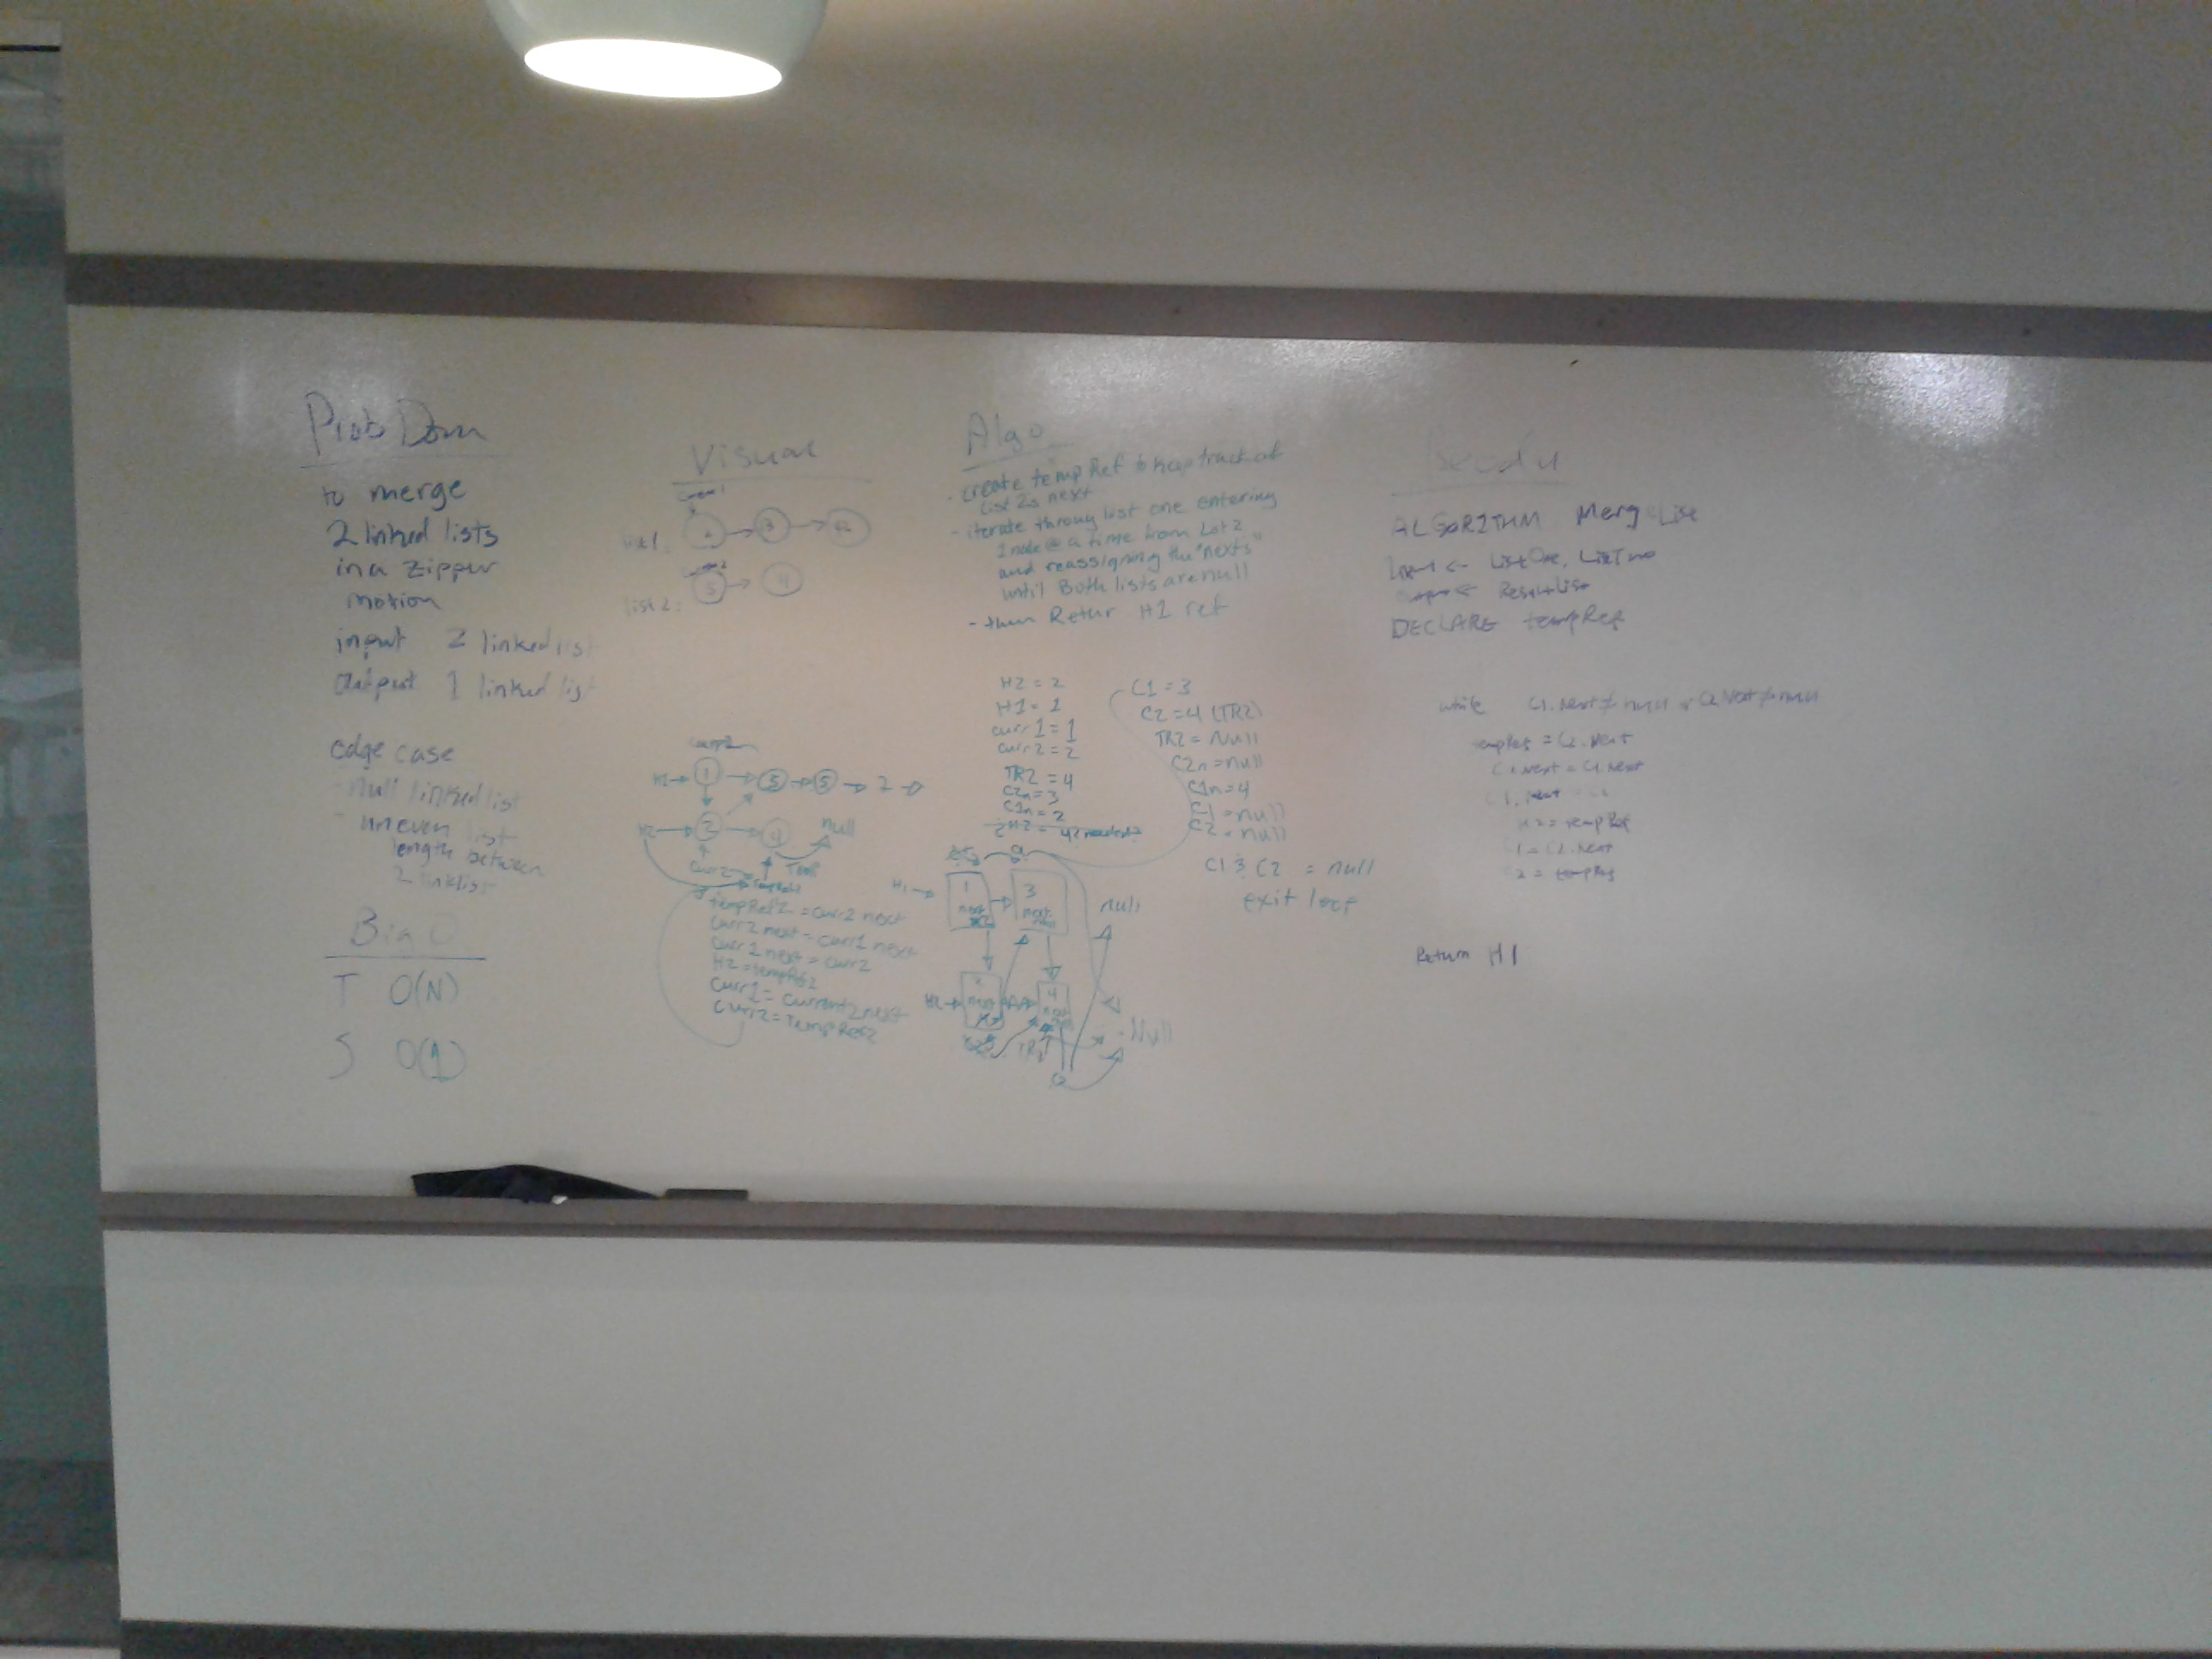 Prob Dom
to merge
2 linked lists
in a zipper
motion
input 2 linked list
output 1 linked list
edge case
- null linked list
- uneven list
length between
2 linklist
Big O
T O(N)
S O(1)
Visual
list 1:
3
list 2:
4
H1 → 1 → 5 → 5 →
H2 → 2 → 4
null
curr2
tempRef2 = curr2 next
curr2 next = curr1 next
curr1 next = curr2
H2 = tempRef2
curr1 = current2 next
curr2 = TempRef2
Algo
- create tempRef to keep track of
list 2s next
- iterate throug list one entering
1 node @ a time from List 2
and reassigning the "nexts"
until Both lists are null
- then Retur H1 ref
H2 = 2
H1 = 1
curr1 = 1
curr2 = 2
TR2 = 4
C2n = 3
C1n = 2
H2 = 4
C1 = 3
C2 = 4 (TR2)
TR2 = Null
C2n = null
C1n = 4
C1 = null
C2 = null
C1 & C2 = null
exit loop
H1 →
1
next
3
next
null
H2 →
next
4
TR2
Null
ALGORITHM Merg List
← ListOne, ListTwo
← ResultList
DECLARE tempRef
while C1.Next ≠ null C2.Next ≠ null
tempRef = C2.Next
C2.Next = C1.Next
H2 = tempRef
= C2.Next
2 = tempRef
Return H1